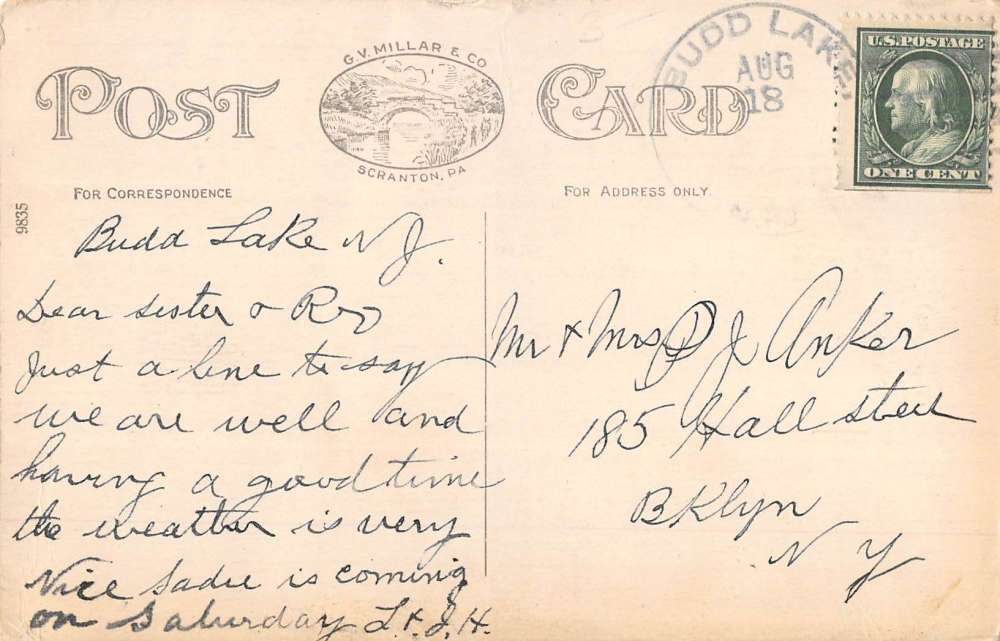 POST CARD
G.V. MILLAR & CO
SCRANTON, PA
BUDD LAKE,
AUG
18
U.S. POSTAGE
ONE CENT
FOR CORRESPONDENCE
FOR ADDRESS ONLY.
9835
Budd Lake N J.
Dear sister & Roy
Just a line to say
we are well and
having a good time
the weather is very
Nice Sadie is coming
on Saturday L. & J. H.
Mr & Mrs D J Anker
185 Hall street
BKlyn
N Y